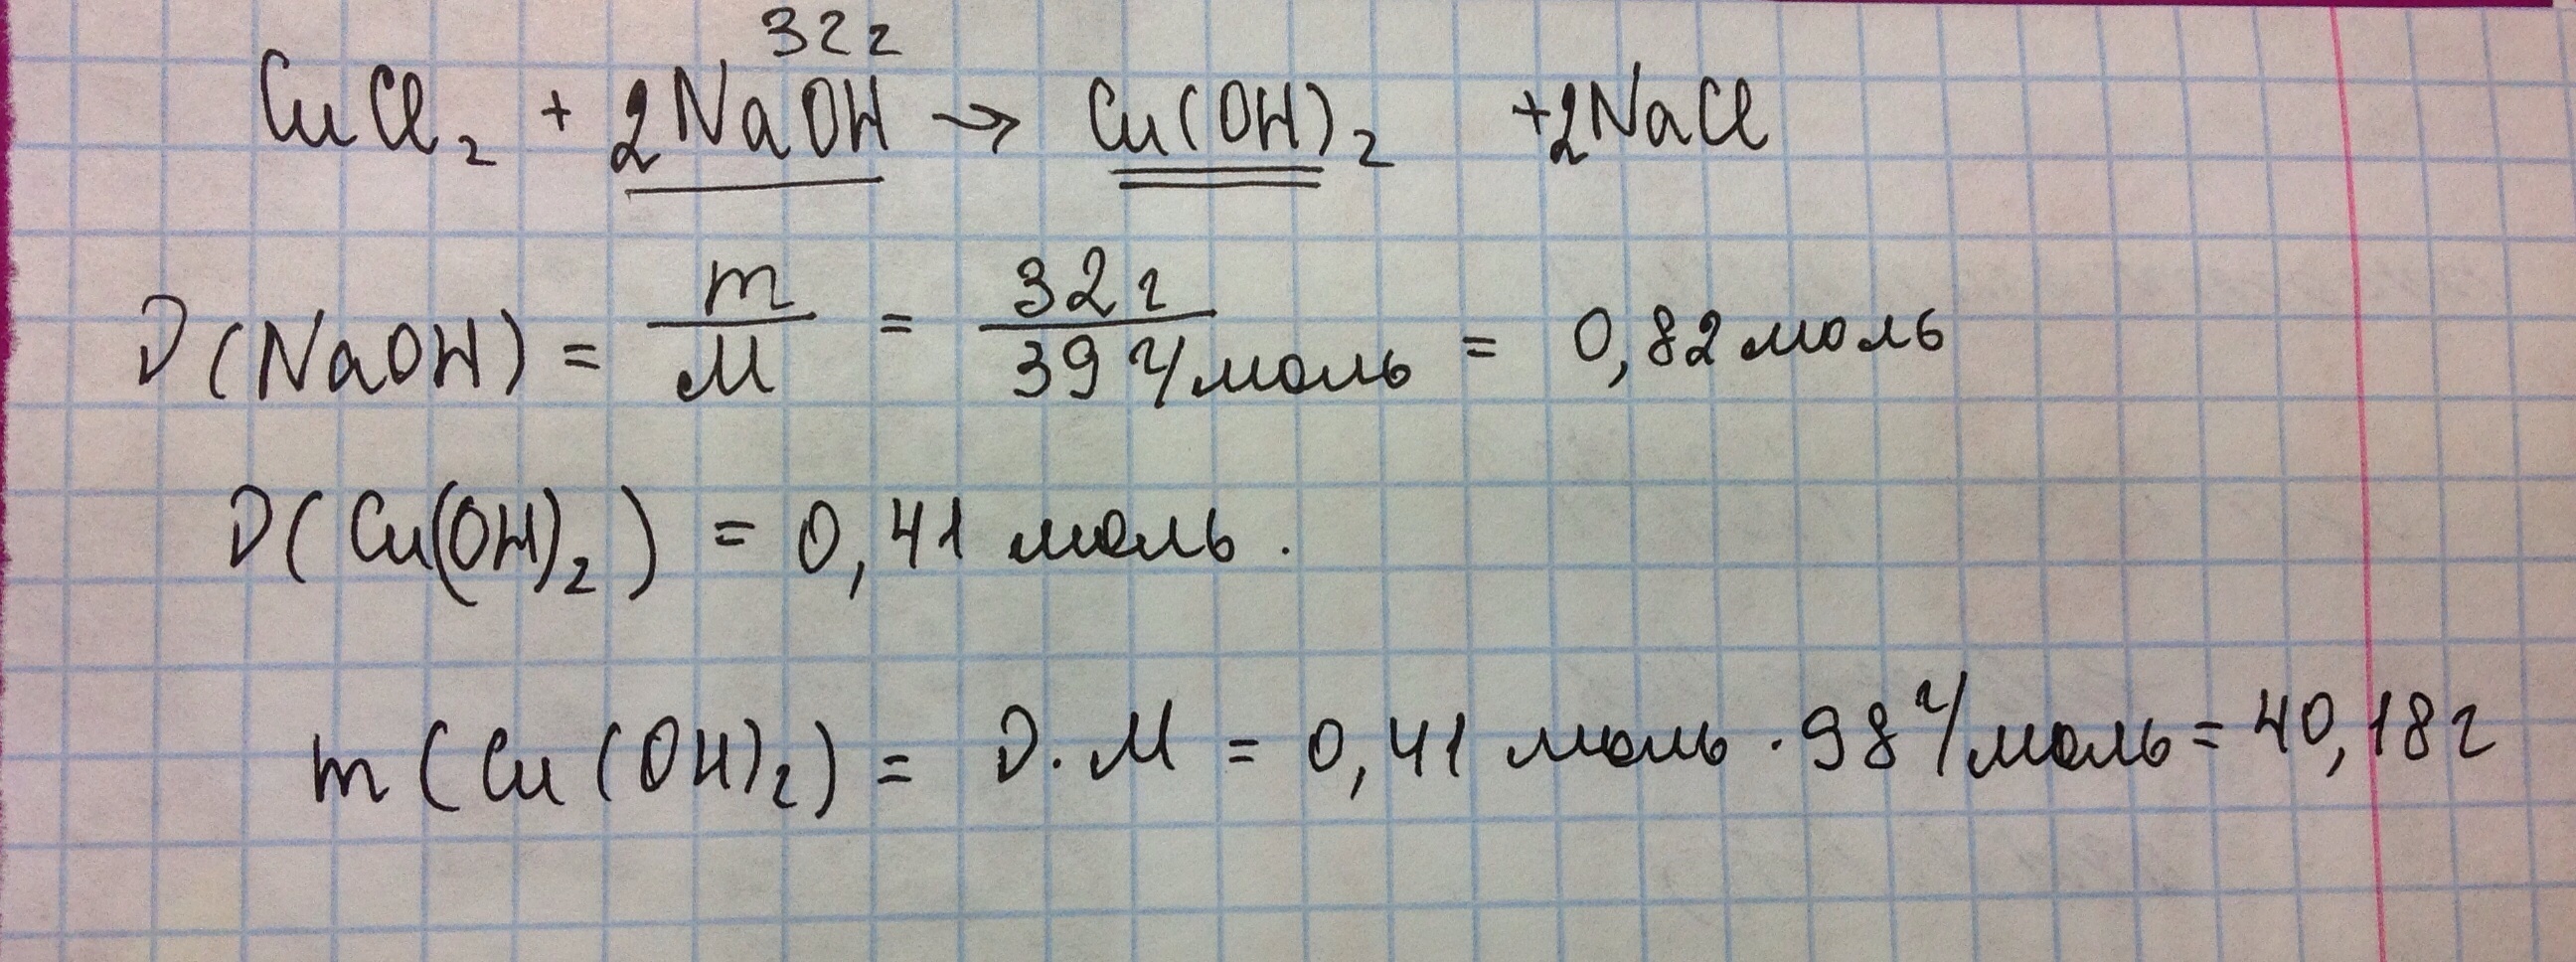 32г
CuCl₂ + 2NaOH → Cu(OH)₂ + 2NaCl
ν(NaOH) = m/M = 32г/39 г/моль = 0,82 моль
ν(Cu(OH)₂) = 0,41 моль.
m(Cu(OH)₂) = ν · M = 0,41 моль · 98 г/моль = 40,18г